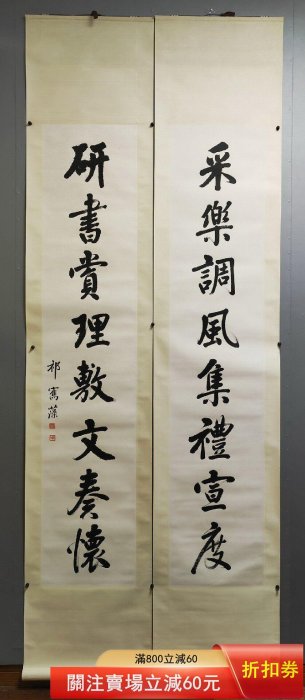 采樂調風集禮宣度
研書賞理敷文奏懷
祁寯藻
滿800立減60
關注賣場立減60元
折扣券